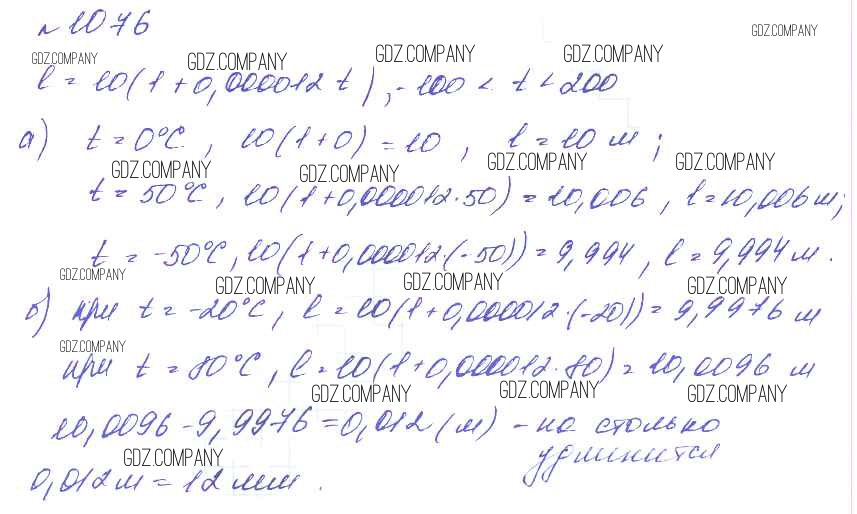 № 1076
GDZ.COMPANY
GDZ.COMPANY GDZ.COMPANY GDZ.COMPANY GDZ.COMPANY
l = 10(1 + 0,000012 t), -100 < t < 200
а) t = 0°C, 10(1+0) = 10, l = 10 м;
GDZ.COMPANY GDZ.COMPANY GDZ.COMPANY GDZ.COMPANY
t = 50°C, 10(1+0,000012·50) = 10,006, l = 10,006 м;
t = -50°C, 10(1+0,000012·(-50)) = 9,994, l = 9,994 м.
GDZ.COMPANY GDZ.COMPANY GDZ.COMPANY GDZ.COMPANY
б) при t = -20°C, l = 10(1+0,000012·(-20)) = 9,9976 м
GDZ.COMPANY
при t = 80°C, l = 10(1+0,000012·80) = 10,0096 м
GDZ.COMPANY GDZ.COMPANY GDZ.COMPANY
10,0096 - 9,9976 = 0,012 (м) - на столько
удлинится
GDZ.COMPANY
0,012 м = 12 мм.